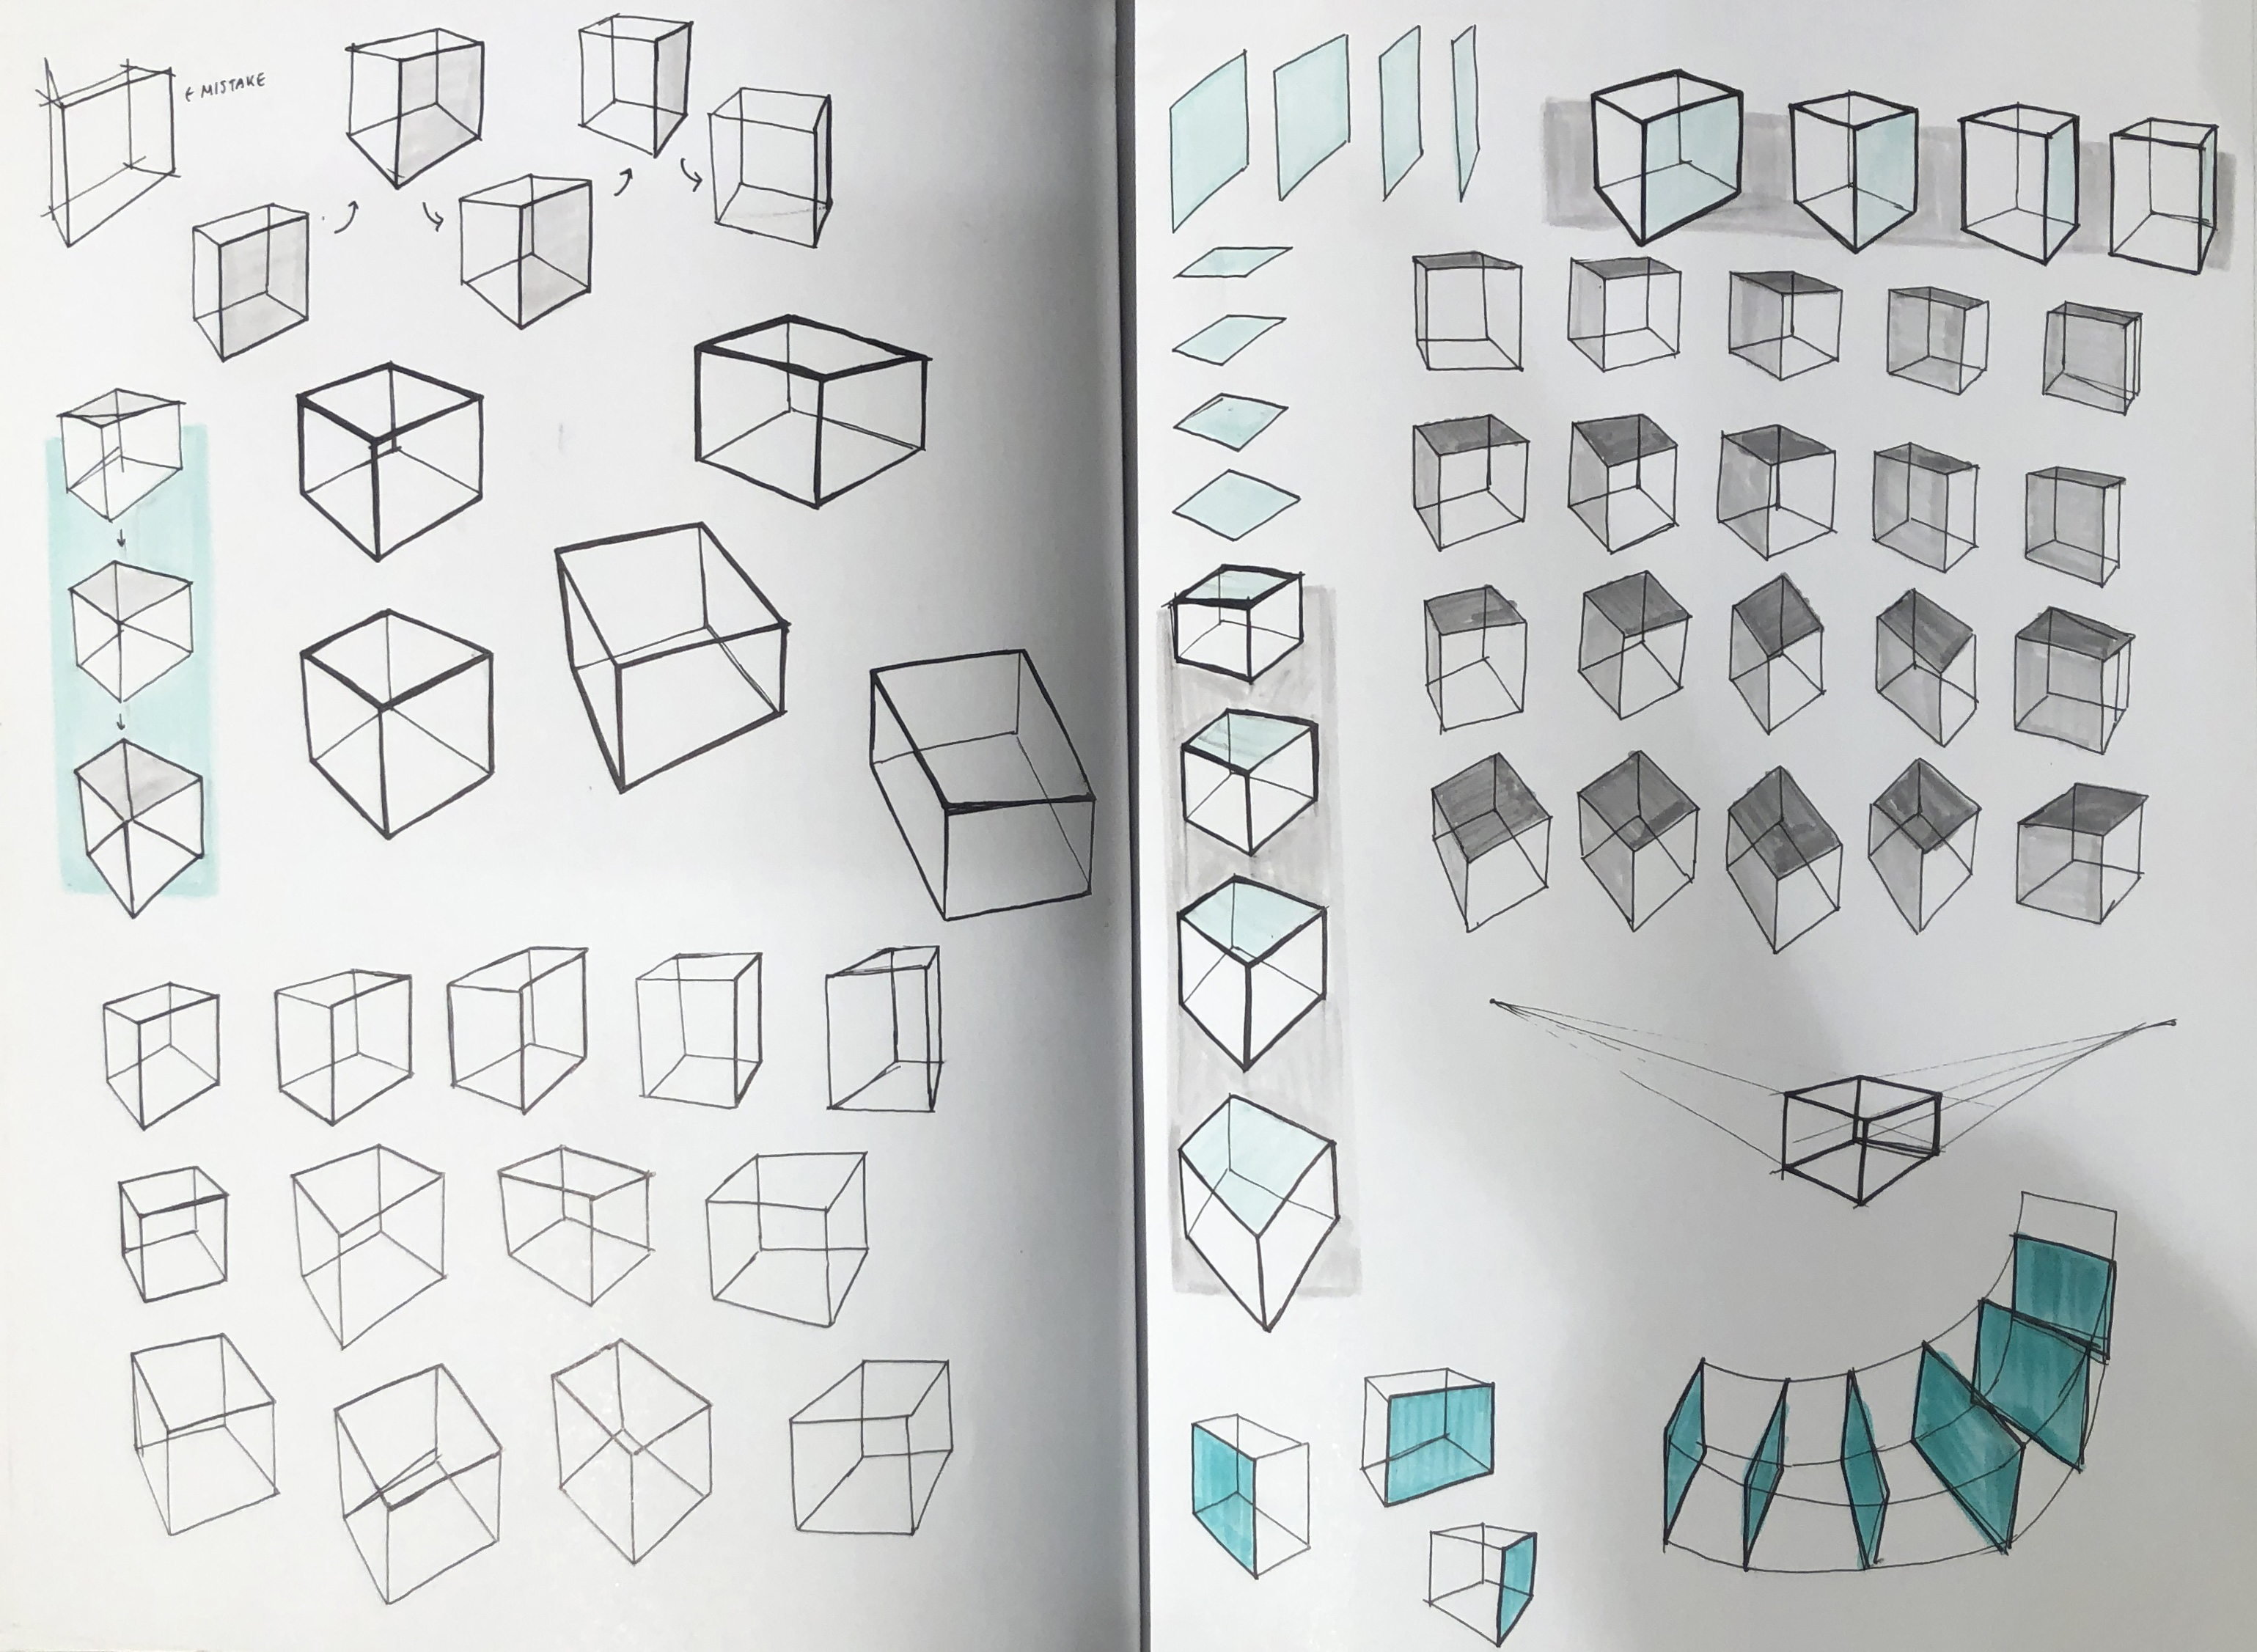 ← MISTAKE